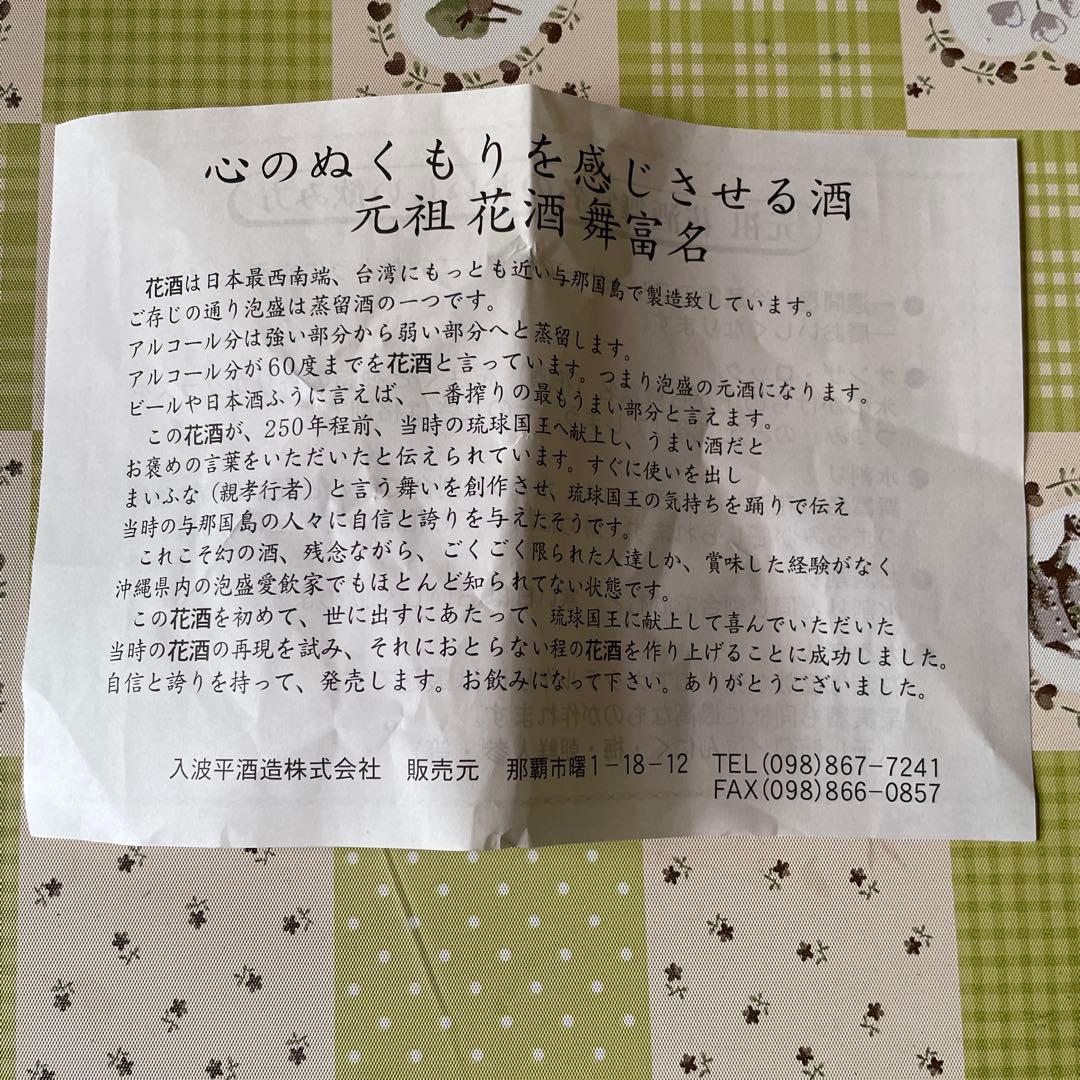 心のぬくもりを感じさせる酒
元祖 花酒 舞富名
花酒は日本最西南端、台湾にもっとも近い与那国島で製造致しています。
ご存じの通り泡盛は蒸留酒の一つです。
アルコール分は強い部分から弱い部分へと蒸留します。
アルコール分が60度までを花酒と言っています。つまり泡盛の元酒になります。
ビールや日本酒ふうに言えば、一番搾りの最もうまい部分と言えます。
この花酒が、250年程前、当時の琉球国王へ献上し、うまい酒だと
お褒めの言葉をいただいたと伝えられています。すぐに使いを出し
まいふな（親孝行者）と言う舞いを創作させ、琉球国王の気持ちを踊りで伝え
当時の与那国島の人々に自信と誇りを与えたそうです。
これこそ幻の酒、残念ながら、ごくごく限られた人達しか、賞味した経験がなく
沖縄県内の泡盛愛飲家でもほとんど知られてない状態です。
この花酒を初めて、世に出すにあたって、琉球国王に献上して喜んでいただいた
当時の花酒の再現を試み、それにおとらない程の花酒を作り上げることに成功しました。
自信と誇りを持って、発売します。お飲みになって下さい。ありがとうございました。
入波平酒造株式会社 販売元 那覇市曙1-18-12 TEL(098)867-7241
FAX(098)866-0857